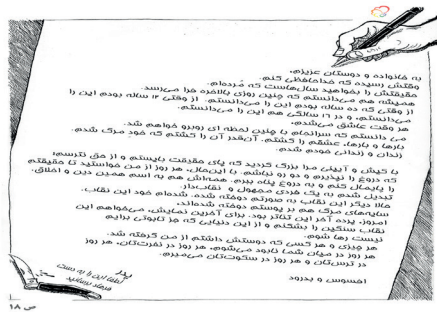 به خانواده و دوستان عزیزم،
وقتش رسیده که خداحافظی کنم.
حقیقتش را بخواهید سال‌هاست که مرده‌ام.
همیشه هم می‌دانستم که چنین روزی بالاخره فرا می‌رسد.
از وقتی که ده ساله بودم این را می‌دانستم. از وقتی ۱۳ ساله بودم این را
می‌دانستم، و در ۱۶ سالگی هم این را می‌دانستم.
هر وقت عاشق می‌شدم،
می دانستم که سرانجام با چنین لحظه ای روبرو خواهم شد.
بارها و بارها، عشقم را کشتم. آن‌قدر آن را کشتم که خود مرگ شدم.
زندان و زندانی خودم شدم.
با کیش و آیینی مرا بزرگ کردید که پای حقیقت بایستم و از حق نترسم؛
که دروغ را نپذیرم و دو رو نباشم. با این‌حال، هر روز از من خواستید تا حقیقتم
را پایمال کنم و به دروغ پناه ببرم. همه‌اش هم به اسم همین دین و اخلاق.
تبدیل شدم به یک فردی مجهول و نقاب‌دار.
حالا دیگر این نقاب به صورتم دوخته شده. شده‌ام خود این نقاب.
سایه‌های مرگ هم بر پوستم دوخته شده‌اند.
امروز، پرده آخر این تئاتر بود. برای آخرین نمایش، می‌خواهم این
نقاب سنگین را بشکنم و از این دنیایی که جز تابوتی برایم
نیست رها شوم.
هر چیزی و هر کسی که دوستش داشتم از من گرفته شد.
هر روز در میان شما نابود می‌شوم، هر روز در نفرت‌تان، هر روز
در ترس‌تان و هر روز در سکوت‌تان می‌میرم.
افسوس و بدرود
لطفا این را به دست
برسانید
ص ۱۸